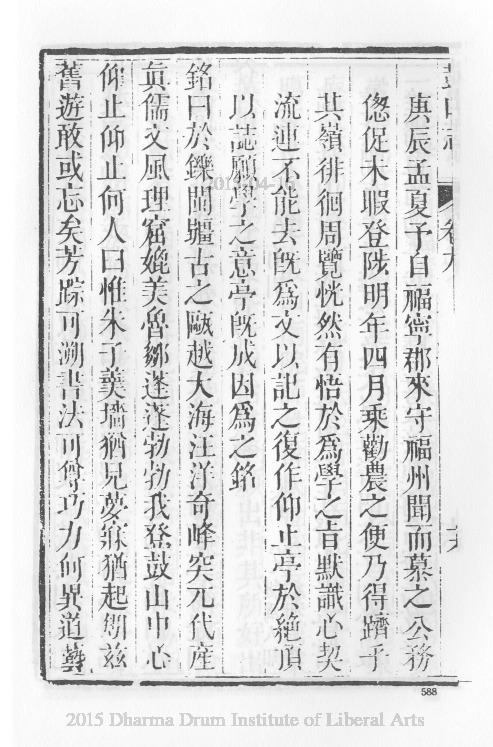 鼓山志 卷九
庚辰孟夏予自福寧郡來守福州聞而慕之公務
倥促未暇登陟明年四月乘勸農之便乃得躋乎
其嶺徘徊周覽恍然有悟於爲學之旨默識心契
流連不能去旣爲文以記之復作仰止亭於絶頂
以誌願學之意亭旣成因爲之銘
銘曰於鑠閩疆古之甌越大海汪洋奇峰突兀代產
眞儒文風理窟媲美魯鄒蓬蓬勃勃我登鼓山中心
仰止仰止何人曰惟朱子羹墻猶見夢寐猶起矧茲
舊遊敢或忘矣芳踪可溯書法可尊巧力何異道藝
588
2015 Dharma Drum Institute of Liberal Arts